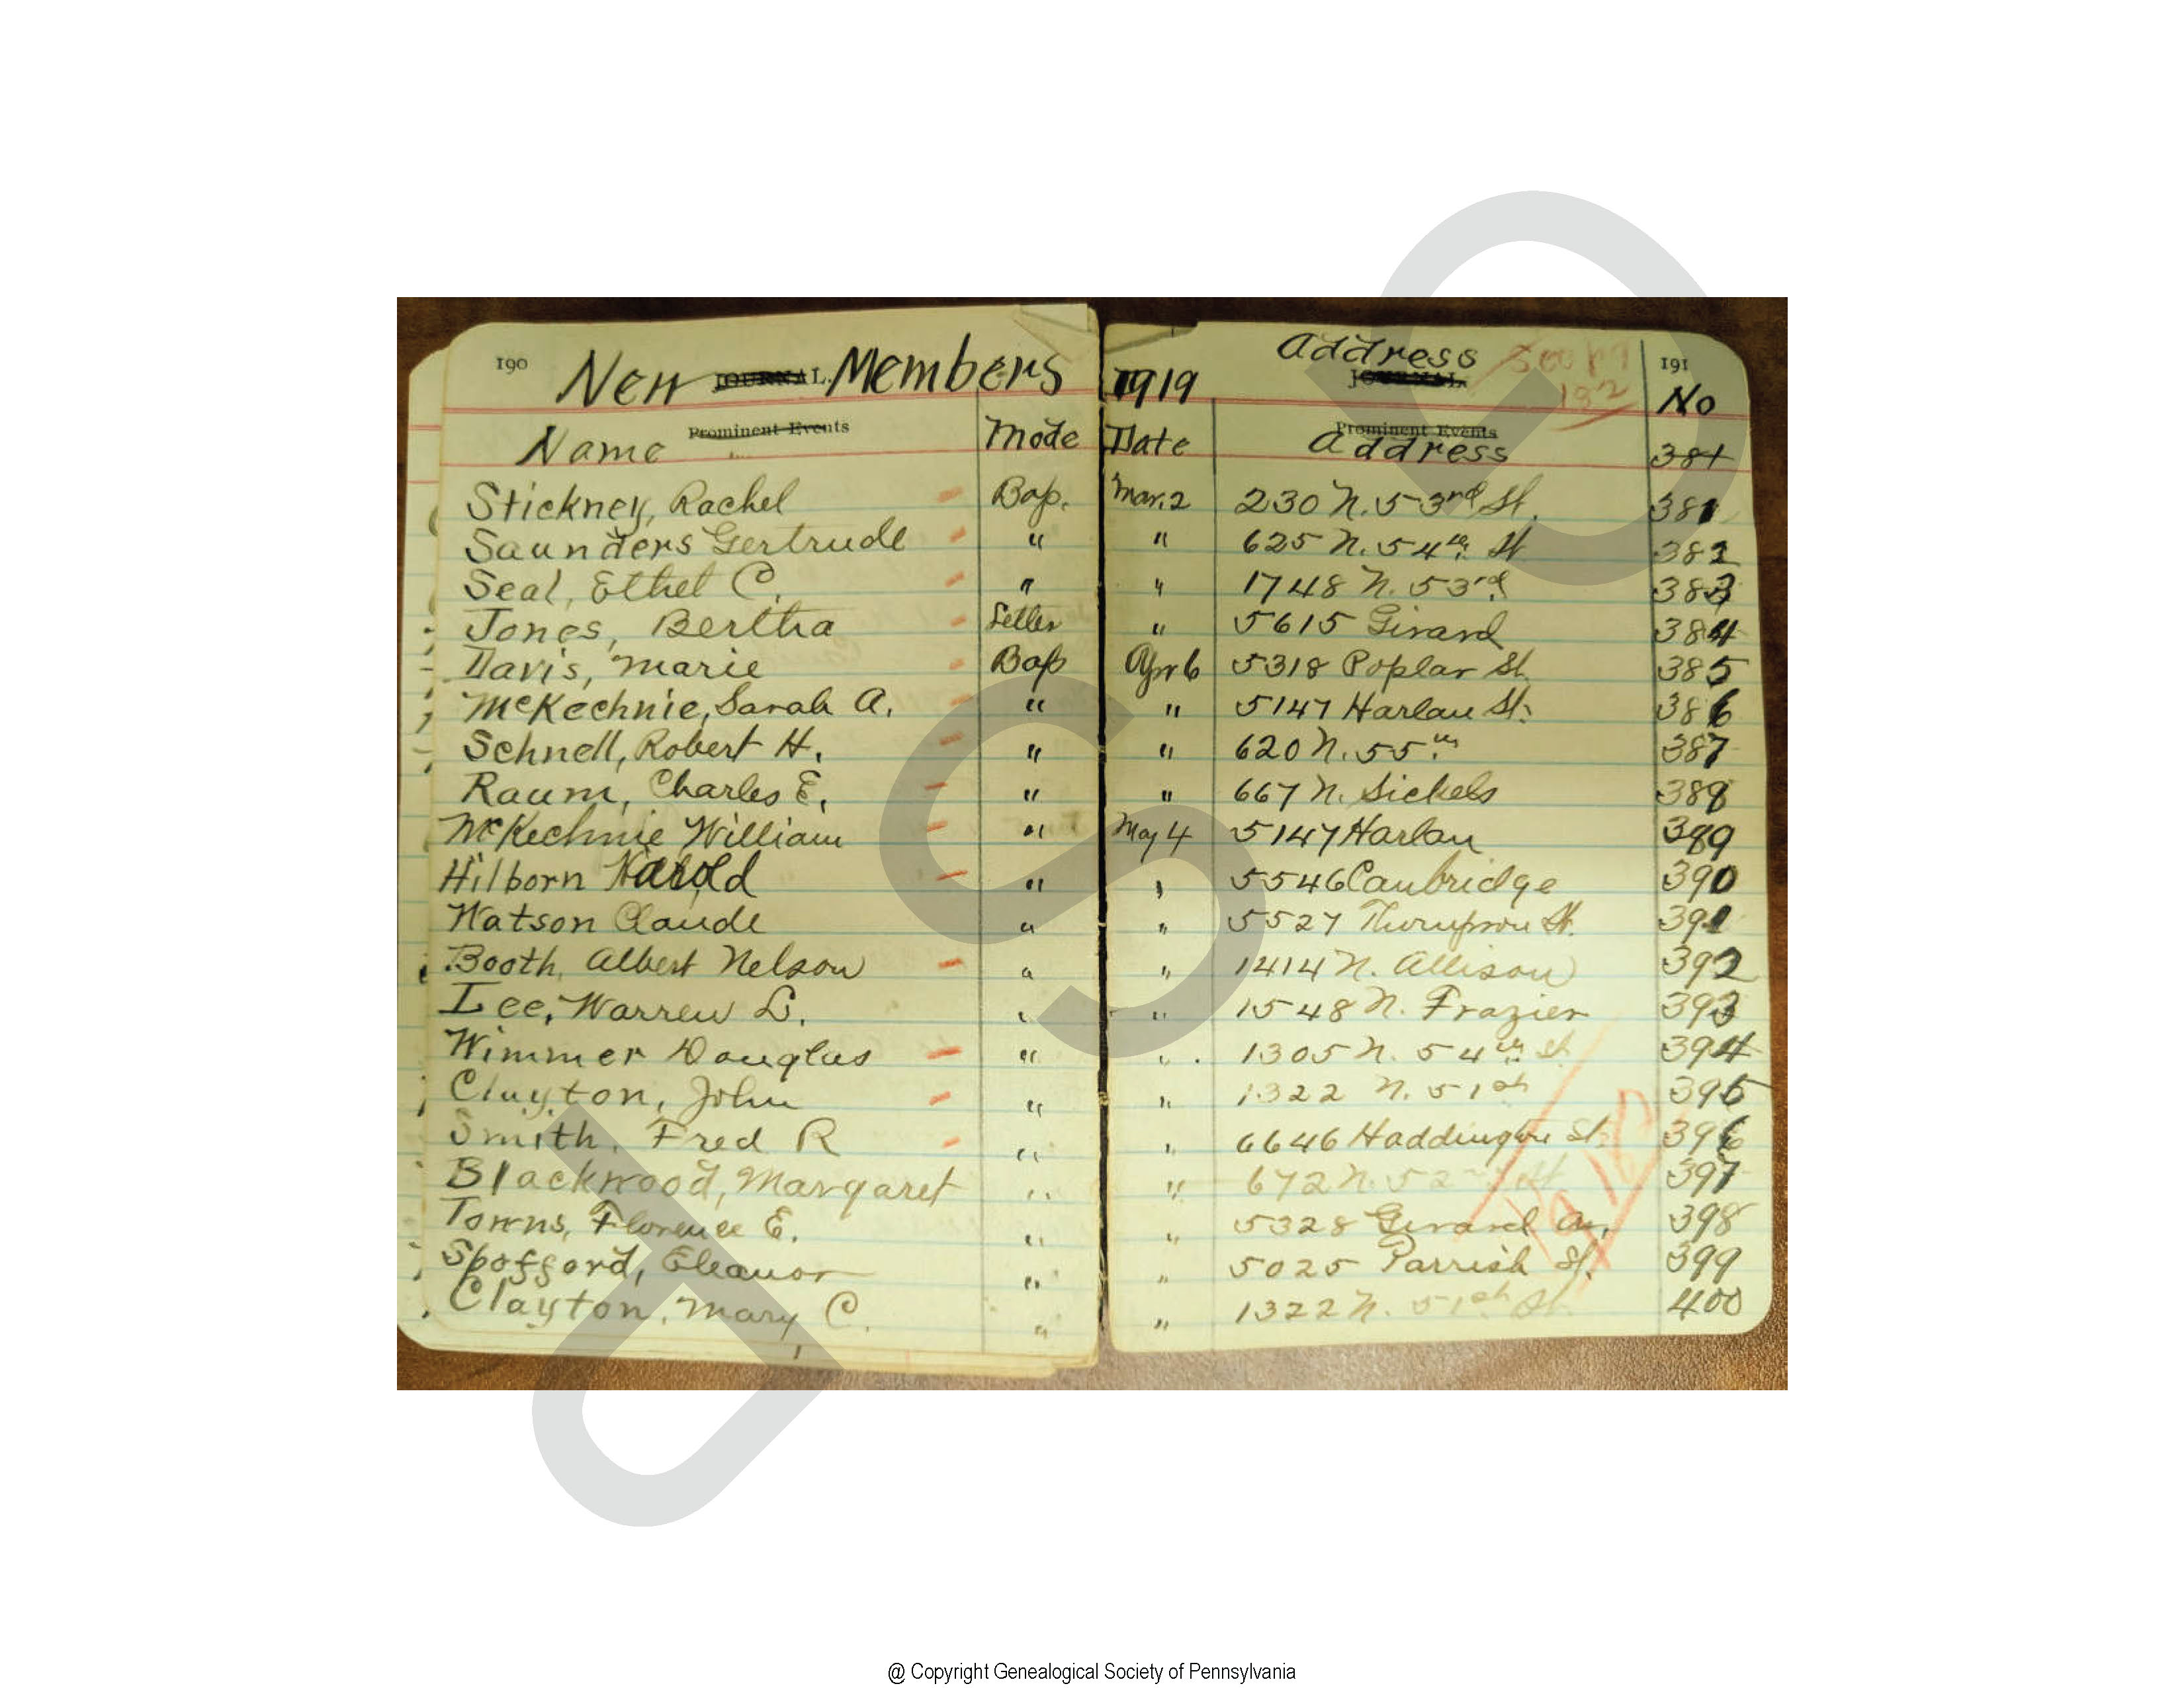 190 New JOURNAL. Members 1919 Address JOURNAL. See pg 182 191
No
Prominent Events Prominent Events
Name Mode Date Address 381
Stickney, Rachel Bap. Mar. 2 230 N. 53rd St. 381
Saunders Gertrude " " 625 N. 54th St 382
Seal, Ethel C. " " 1748 N. 53rd 383
Jones, Bertha Letter " 5615 Girard 384
Davis, Marie Bap Apr 6 5318 Poplar St. 385
McKechnie, Sarah A. " " 5147 Harlan St. 386
Schnell, Robert H. " " 620 N. 55th 387
Raum, Charles E. " " 667 N. Sickels 388
McKechnie William " May 4 5147 Harlan 389
Hilborn Harold " " 5546 Cambridge 390
Watson Claude " " 5527 Thompson St. 391
Booth, Albert Nelson " " 1414 N. Allison 392
Lee, Warren L. " " 1548 N. Frazier 393
Wimmer Douglas " " 1305 N. 54th St 394
Clayton, John " " 1322 N. 51st 395
Smith, Fred R " " 6646 Haddington St. 396
Blackwood, Margaret " " 672 N. 52nd St 397
Towns, Florence E. " " 5328 Girard Av. 398
Spofford, Eleanor " " 5025 Parrish St. 399
Clayton, Mary C. " " 1322 N. 51st St. 400
GSP
@ Copyright Genealogical Society of Pennsylvania